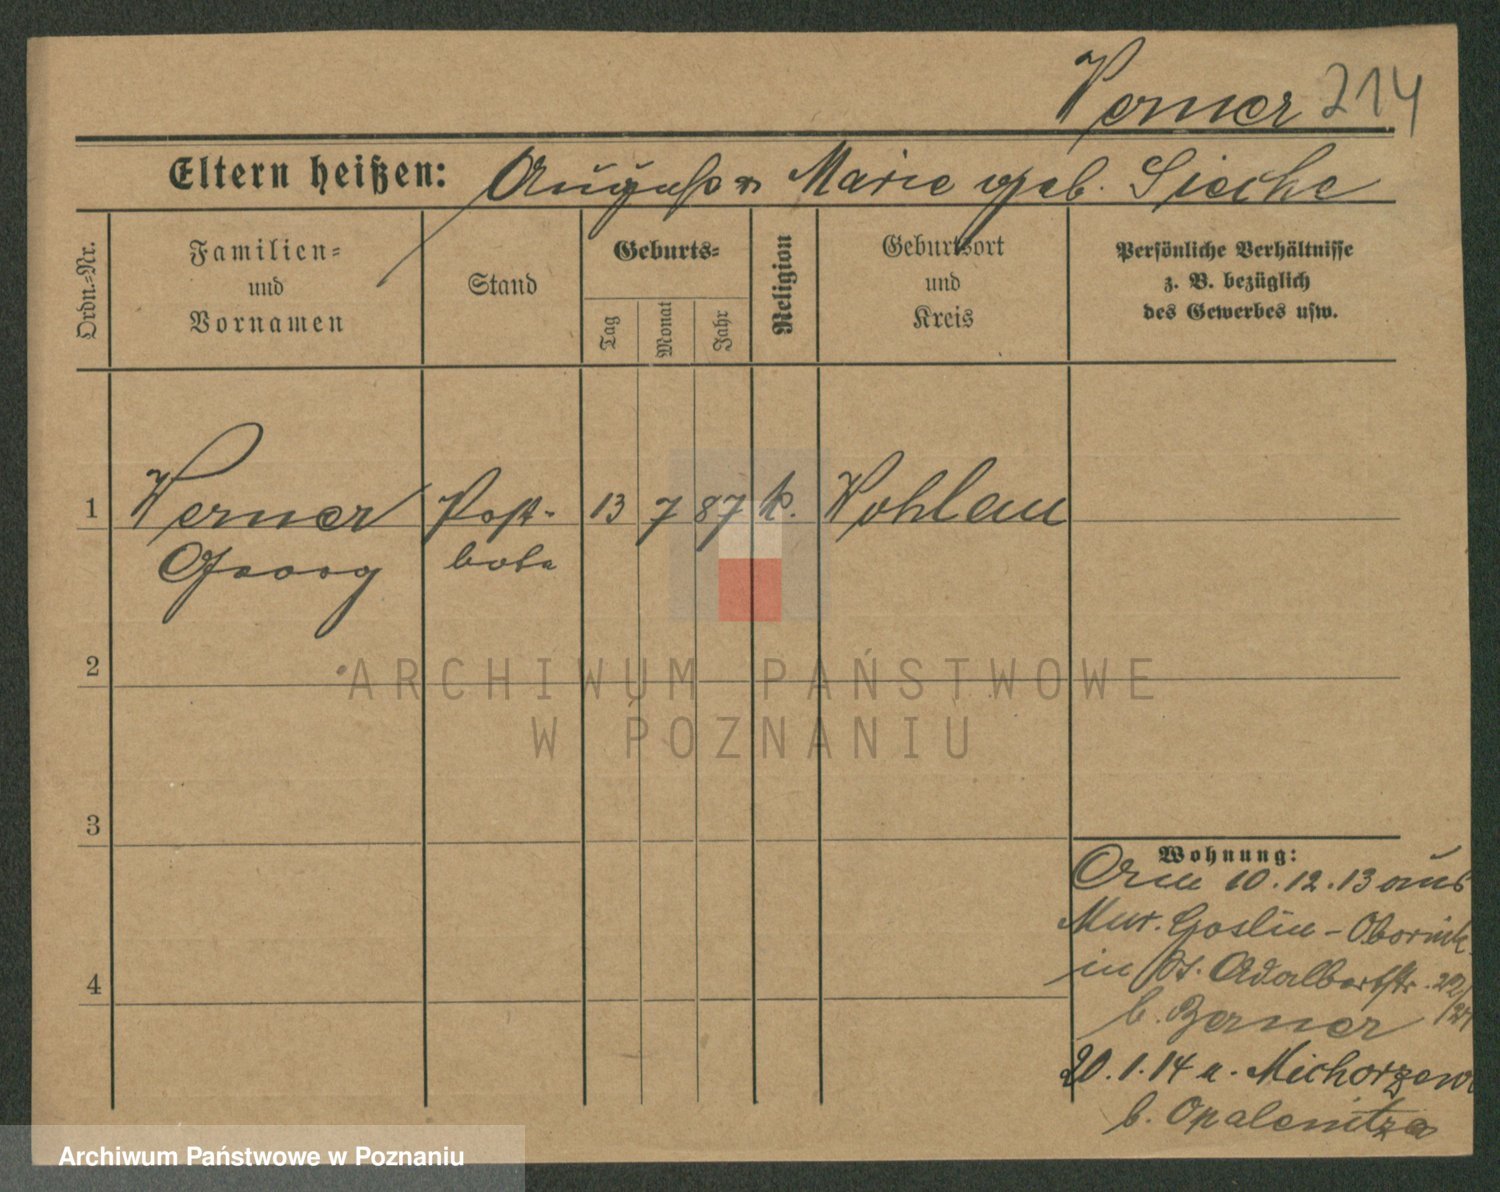 Werner 214
Eltern heißen: August u Marie geb. Sieche
Ordn.-Nr.
Familien-
und
Vornamen
Stand
Geburts-
Tag
Monat
Jahr
Religion
Geburtsort
und
Kreis
Persönliche Verhältnisse
z. B. bezüglich
des Gewerbes usw.
1 Werner Post- 13 7 87 k. Wohlau
Georg bote
2
3
4
Wohnung:
10.12.13 aus
Mur. Goslin - Obornik
in Adalbertstr.
b. Berner
20.1.14 n. Michorzewo
b. Opalenitza
ARCHIWUM PAŃSTWOWE
W POZNANIU
Archiwum Państwowe w Poznaniu